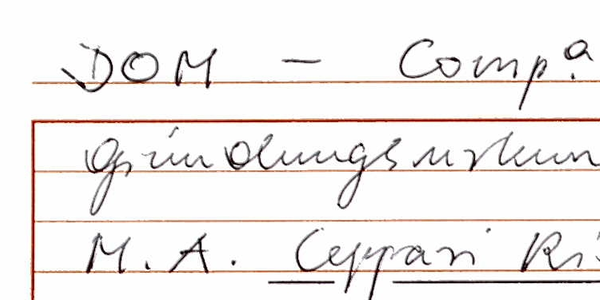 DOM – Comp.a
Gründungsurkun
M. A. Ceppari Ri